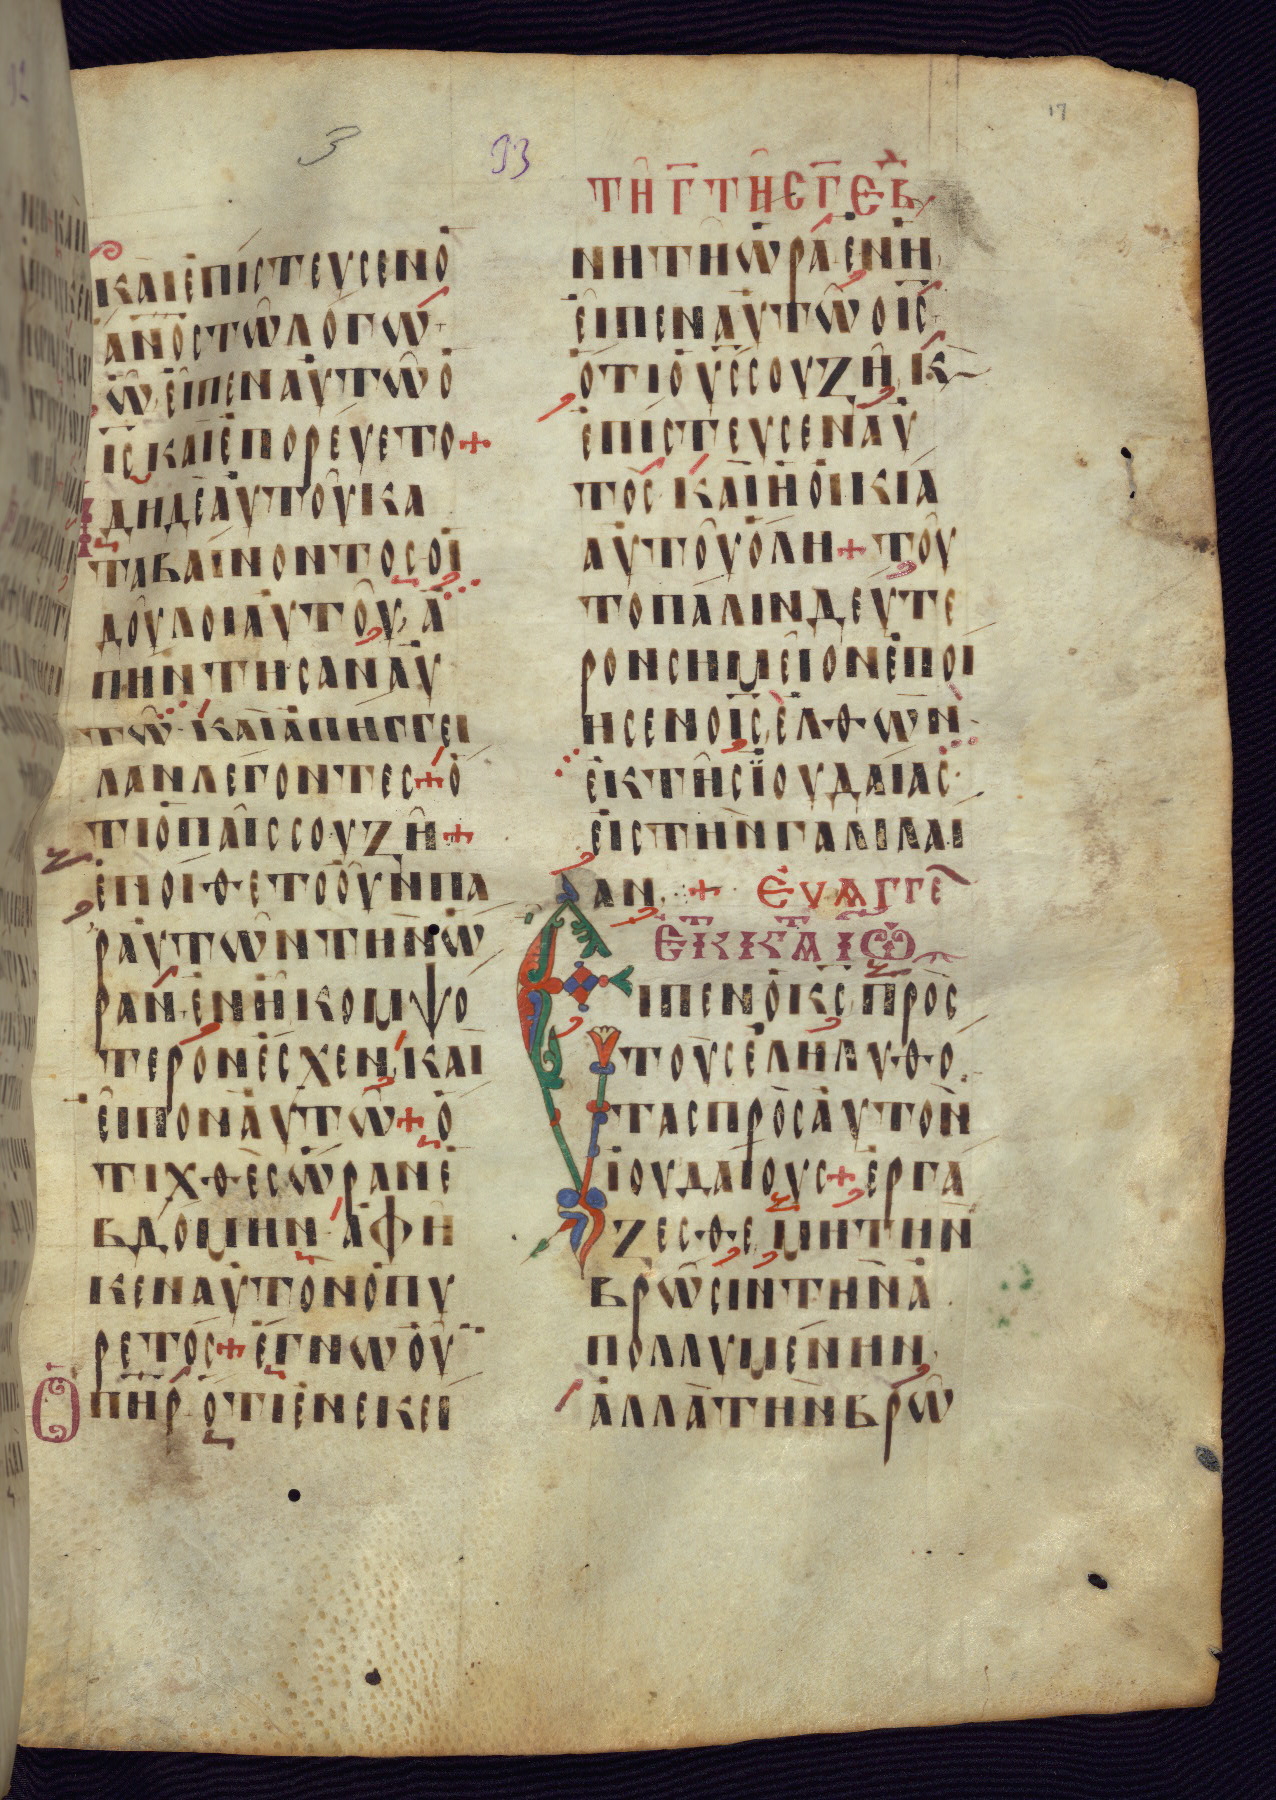 17
3
93
ΚΑΙ ΕΠΙΣΤΕΥΣΕΝ Ο
ΑΝΟΣ ΤΩ ΛΟΓΩ
Ω ΕΙΠΕΝ ΑΥΤΩ Ο
ΙΣ ΚΑΙ ΕΠΟΡΕΥΕΤΟ +
ΔΗ ΔΕ ΑΥΤΟΥ ΚΑ
ΤΑΒΑΙΝΟΝΤΟΣ ΟΙ
ΔΟΥΛΟΙ ΑΥΤΟΥ, Α
ΠΗΝΤΗΣΑΝ ΑΥ
ΤΩ ΚΑΙ ΑΠΗΓΓΕΙ
ΛΑΝ ΛΕΓΟΝΤΕΣ + Ο
ΤΙ Ο ΠΑΙΣ ΣΟΥ ΖΗ +
ΕΠΟΙΘΕΤΟ ΟΥΝ ΠΑ
Ρ ΑΥΤΩΝ ΤΗΝ Ω
ΡΑΝ ΕΝ Η ΚΟΜΨΟ
ΤΕΡΟΝ ΕΣΧΕΝ, ΚΑΙ
ΕΙΠΟΝ ΑΥΤΩ + Ο
ΤΙ ΧΘΕΣ ΩΡΑΝ Ε
ΒΔΟΜΗΝ ΑΦΗ
ΚΕΝ ΑΥΤΟΝ Ο ΠΥ
ΡΕΤΟΣ + ΕΓΝΩ ΟΥ
Ο ΠΗΡ ΟΤΙ ΕΝ ΕΚΕΙ
ΤΗ Γ ΤΗΣ Γ ΕΒΔ
ΝΗ ΤΗ ΩΡΑ ΕΝ Η
ΕΙΠΕΝ ΑΥΤΩ Ο ΙΣ
ΟΤΙ Ο ΥΣ ΣΟΥ ΖΗ, Κ
ΕΠΙΣΤΕΥΣΕΝ ΑΥ
ΤΟΣ ΚΑΙ Η ΟΙΚΙΑ
ΑΥΤΟΥ ΟΛΗ + ΤΟΥ
ΤΟ ΠΑΛΙΝ ΔΕΥΤΕ
ΡΟΝ ΣΗΜΕΙΟΝ ΕΠΟΙ
ΗΣΕΝ Ο ΙΣ, ΕΛΘΩΝ
ΕΚ ΤΗΣ ΙΟΥΔΑΙΑΣ
ΕΙΣ ΤΗΝ ΓΑΛΙΛΑΙ
ΑΝ + ΕΥΑΓΓΕ
ΕΚ Κ ΤΑ ΙΩ
ΕΙΠΕΝ Ο ΚΣ ΠΡΟΣ
ΤΟΥΣ ΕΛΗΛΥΘΟ
ΤΑΣ ΠΡΟΣ ΑΥΤΟΝ
ΙΟΥΔΑΙΟΥΣ + ΕΡΓΑ
ΖΕΣΘΕ ΜΗ ΤΗΝ
ΒΡΩΣΙΝ ΤΗΝ Α
ΠΟΛΛΥΜΕΝΗΝ,
ΑΛΛΑ ΤΗΝ ΒΡΩ